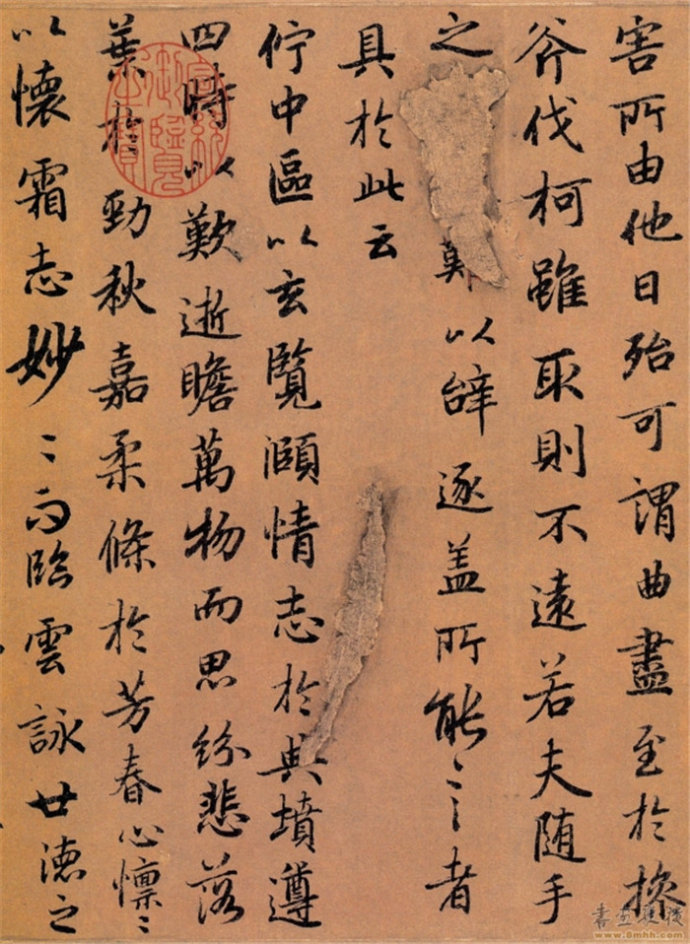 害所由他日殆可謂曲盡至於操
斧伐柯雖取則不遠若夫隨手
之以辭逐盖所能言者
具於此云
佇中區以玄覽頤情志於典墳遵
四時以歎逝瞻萬物而思紛悲落
葉於勁秋嘉柔條於芳春心懍〻
以懷霜志妙〻而臨雲詠世德之
宣統御覽之寶
www.8mhh.com